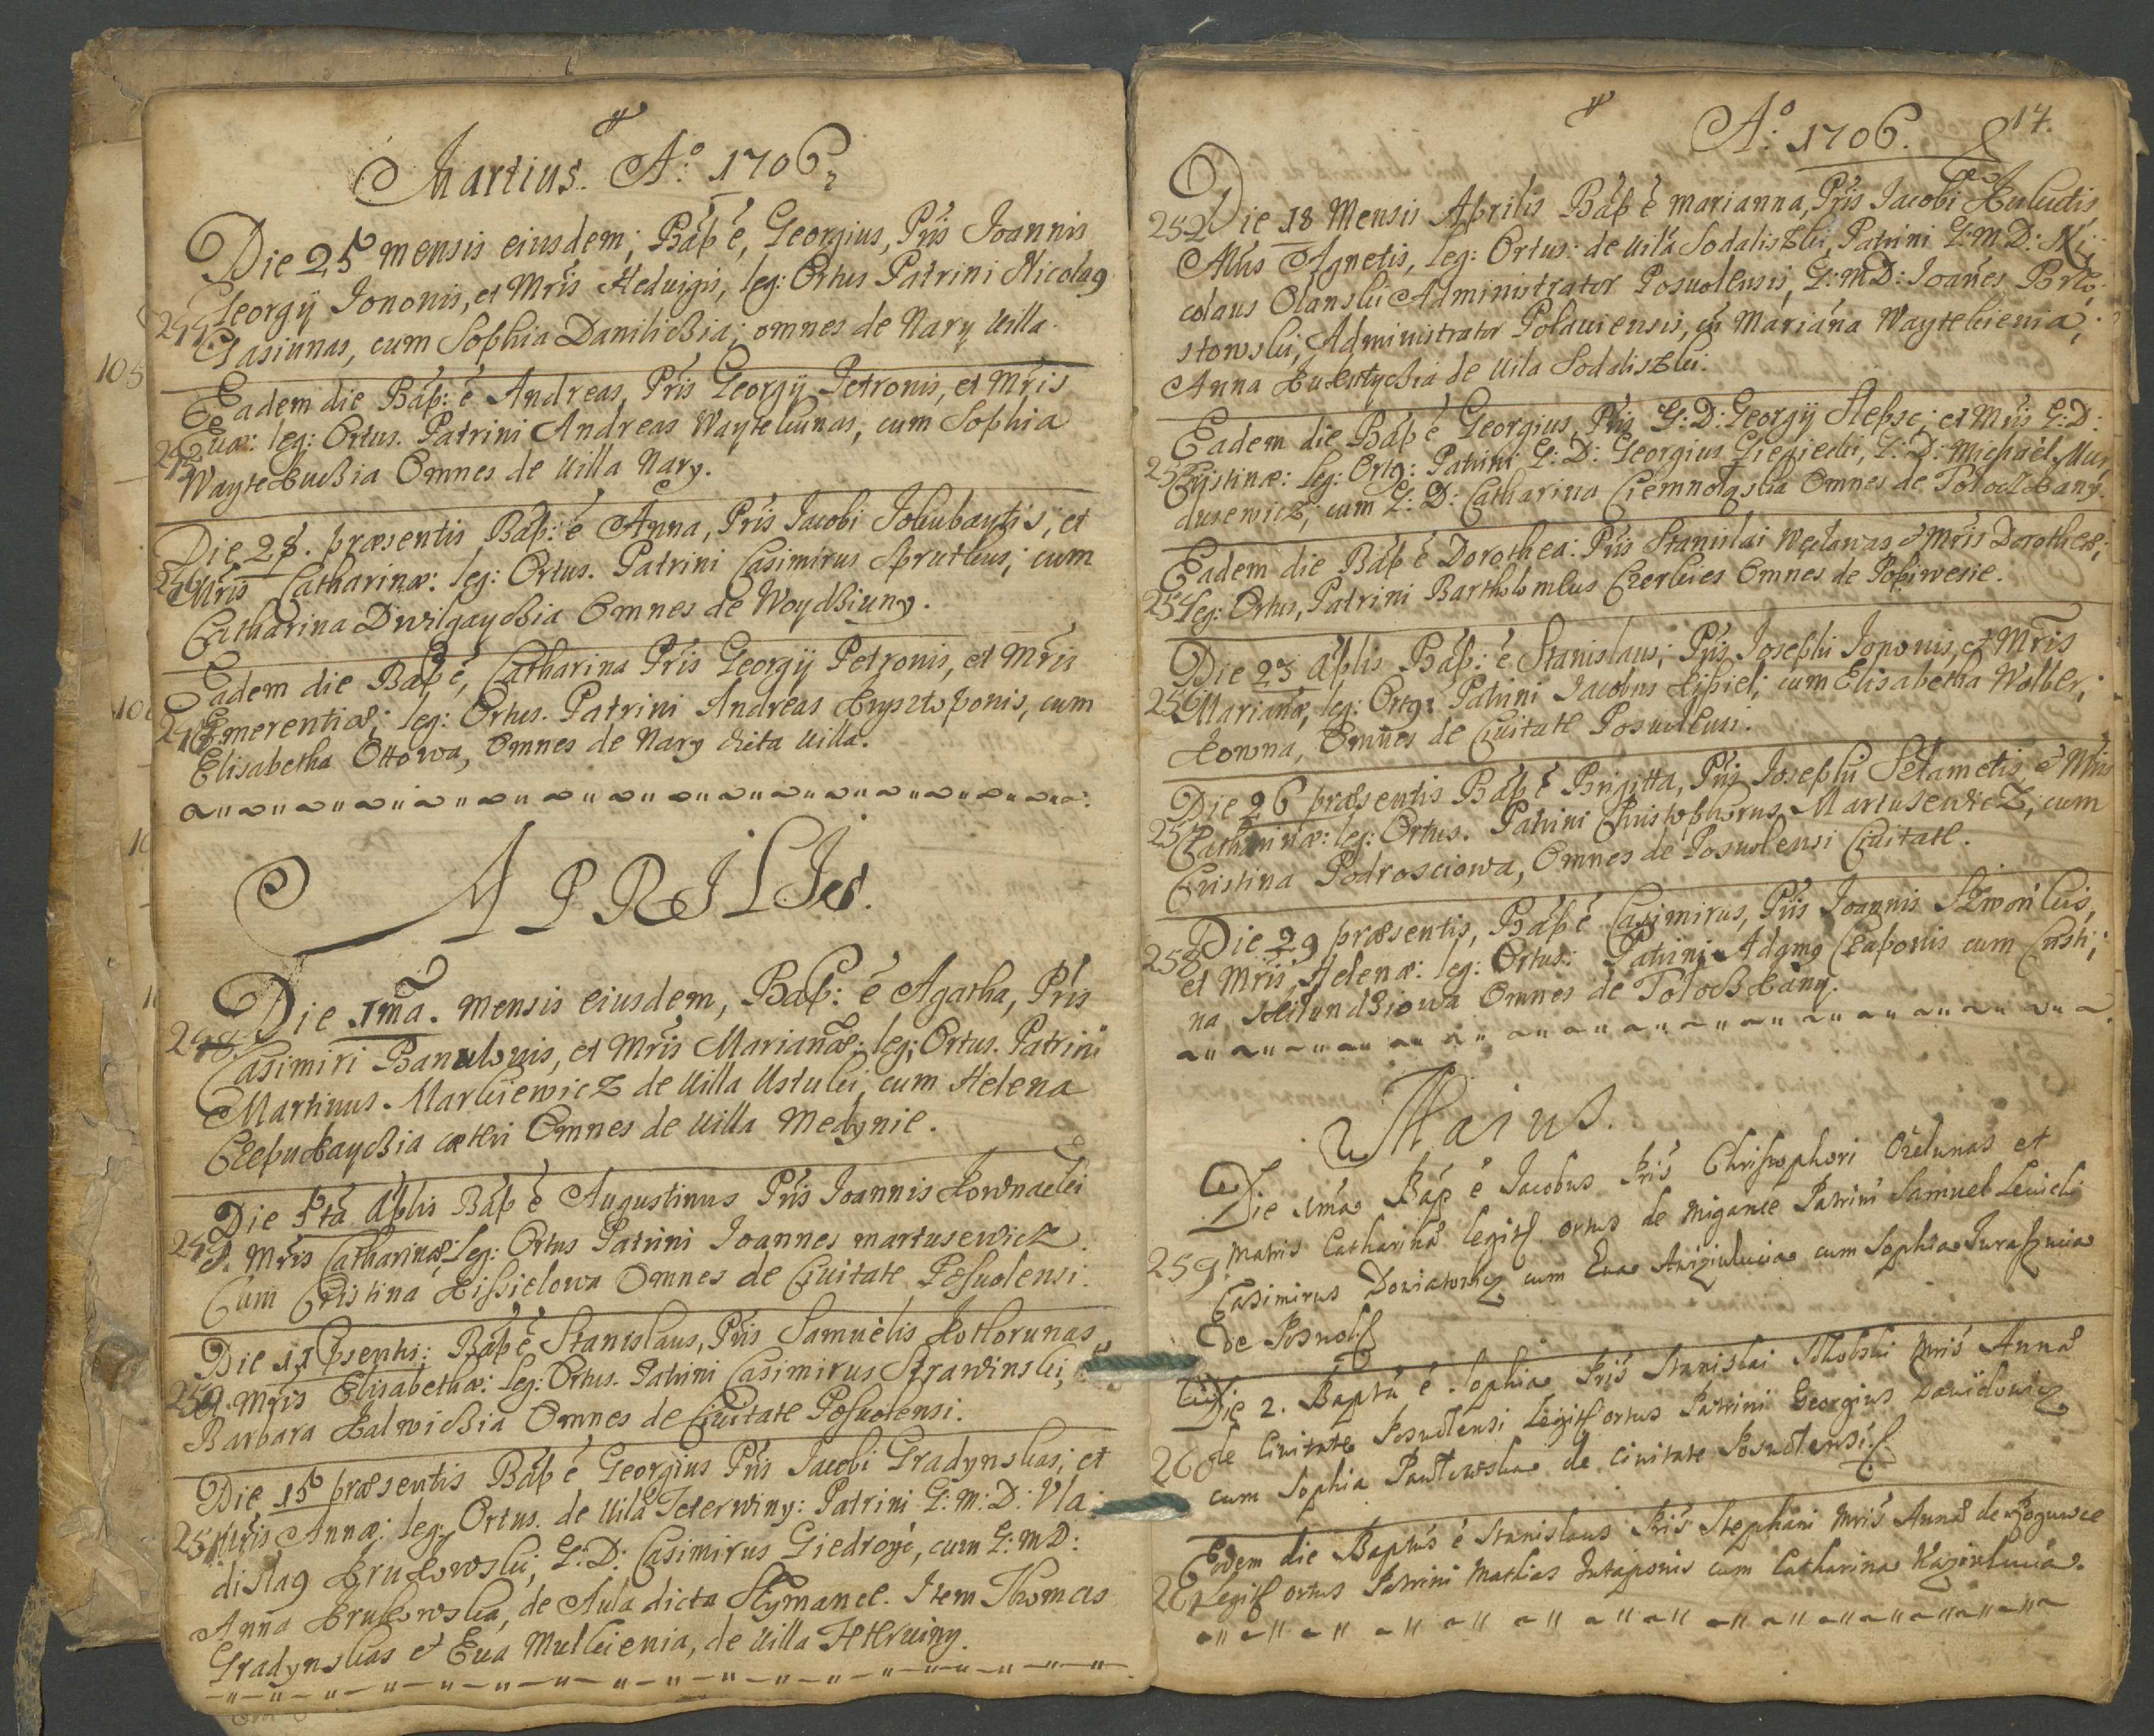 Martius. Aº: 1706.
Die 25 mensis eiusdem; Báp: é, Georgius, Pris Joannis
Georgÿ Jononis, et Mris Hedvigis, leg: Ortus Patrini Nicolaꝯ
244 Gasiunas, cum Sophia Daniliczia; omnes de Nary Uilla.
Eadem die Báp: é Andreas, Pris Georgÿ Petronis, et Mris
245 Euæ: leg: Ortus. Patrini Andreas Waytekunas, cum Sophia
Waytekuczia Omnes de Uilla Nary.
Die 28. præsentis Báp: é Anna, Pris Jacobi Jokubaytis, et
246 Mris Catharinæ: leg: Ortus. Patrini Casimirus Sprutkus; cum
Catharina Dwilgayczia Omnes de Woydziuny.
Eadem die Báp é, Catharina Pris Georgÿ Petronis, et Mris
247 Emerentiæ; leg: Ortus. Patrini Andreas Krysztoponis, cum
Elisabetha Ottowa, Omnes de Nary dicta Uilla.
APRILIS.
Die 1ma. mensis eiusdem, Bap: é Agatha, Pris
248 Casimiri Banulonis, et Mris Marianæ; leg: Ortus. Patrini
Martinus Markiewicz de Uilla Ustuki, cum Helena
Czepukayczia cæteri Omnes de Uilla Medynie.
Die 5ta Aplis Báp é Augustinus Pris Joannis Kownacki
249. Mris Catharinæ; leg: Ortus Patrini Joannes Martusewicz
Cum Cristina Kissielowa Omnes de Ciuitate Posuolensi.
Die 11 Psentis: Báp é Stanislaus, Pris Samuelis Kotlorunas,
250. Mris Elisabethæ: leg: Ortus. Patrini Casimirus Strawinski,
Barbara Kalwiczia Omnes de Ciuitate Posuolensi.
Die 15 præsentis Báp é Georgius Pris Jacobi Gradynskas; et
251 Mris Annæ: leg: Ortus. de Uilla Teterwiny: Patrini G: M: D: Vla-
dislaꝯ Krukowski, G: D: Casimirus Giedroyć, cum G: M D:
Anna Krukowska, de Aula dicta Szymance. Item Thomas
Gradynskas et Eua Mulkienia, de Uilla Teteruiny.
Aº: 1706. 17.
252 Die 18 Mensis Aprilis Báp é Marianna, Pris Jacobi Kukutis
Mris Agnetis, leg: Ortus: de Uilla Sodaliszki, Patrini G: M D: Ni-
colaus Olanski Administrator Posuolensis, G: M D: Joañes Porto-
stowski, Administrator Polauiensis, cũ Mariána Waytekienia;
Anna Kukutyczia de Uila Sodaliszki.
Eadem die Báp é Georgius, Pris G: D: Georgÿ Slepsc; et Mris G: D:
253 Cristinæ: leg: Ortꝯ: Patrini G: D: Georgius Giegiecki, G: D: Michael Mur-
dusewicz, cum G: D: Catharina Ciemnołąska Omnes de Toloczkany.
Eadem die Báp é Dorothea: Pris Stanislai Węcławas et Mris Dorotheæ;
254 leg: Ortus, Patrini Bartholomeus Czerkies Omnes de Popiwesie.
Die 23 Aplis Báp: é Stanislaus; Pris Josephi Jononis, et Mris
256 Marianæ, leg: Ortꝯ: Patrini Jacobus Kissiel; cum Elisabetha Wolber-
kowna, Omnes de Ciuitate Posuolensi.
Die 26 præsentis Báp é Brigitta, Pris Josephi Setametis, et Mris
257 Catharinæ: leg: Ortus. Patrini Christophorus Martusewicz, cum
Cristina Podrosciowa, Omnes de Posuolensi Ciuitate.
Die 29 præsentis, Báp é Casimirus, Pris Joannis Szwońkis,
258 et Mris Helenæ: leg: Ortus: Patrini Adamꝯ Czaponis cum Cristi-
na Heilundziowa Omnes de Toloczkany.
Maius.
Die 1ma Báp é Jacobus Pris Christophori Ozelunas et
259. Matris Catharina legit ortus de Migance Patrini Samuel Leuicki
Casimirus Doniatowicz cum Eua cum Sophia
de Posuol
Die 2. Baptũ é Sophia Pris Stanislai Mris Anna
260 de Ciuitate Posuolensi Legit ortus Patrini Georgius Dawidowicz
cum Sophia Pawłowska de Ciuitate Posuolensi.
Eodem die Baptus é Stanislaus Pris Stephani Mris Annæ de
261 Legit ortus Patrini Mathias cum Catharina